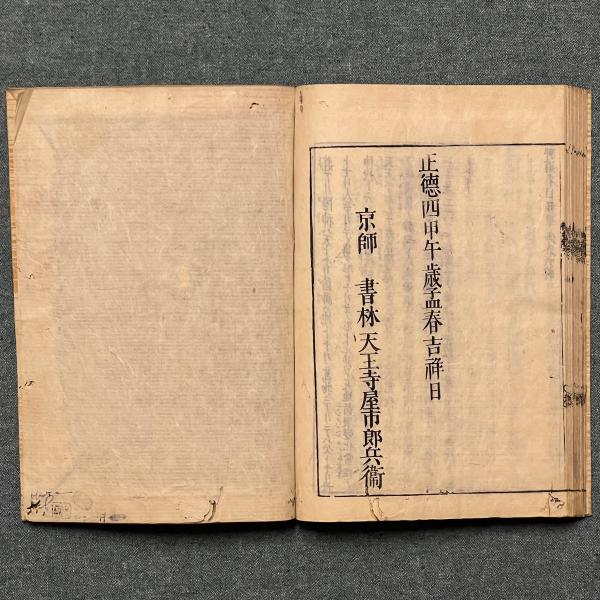 正德四甲午歲孟春吉祥日
京師 書林 天王寺屋市郎兵衞